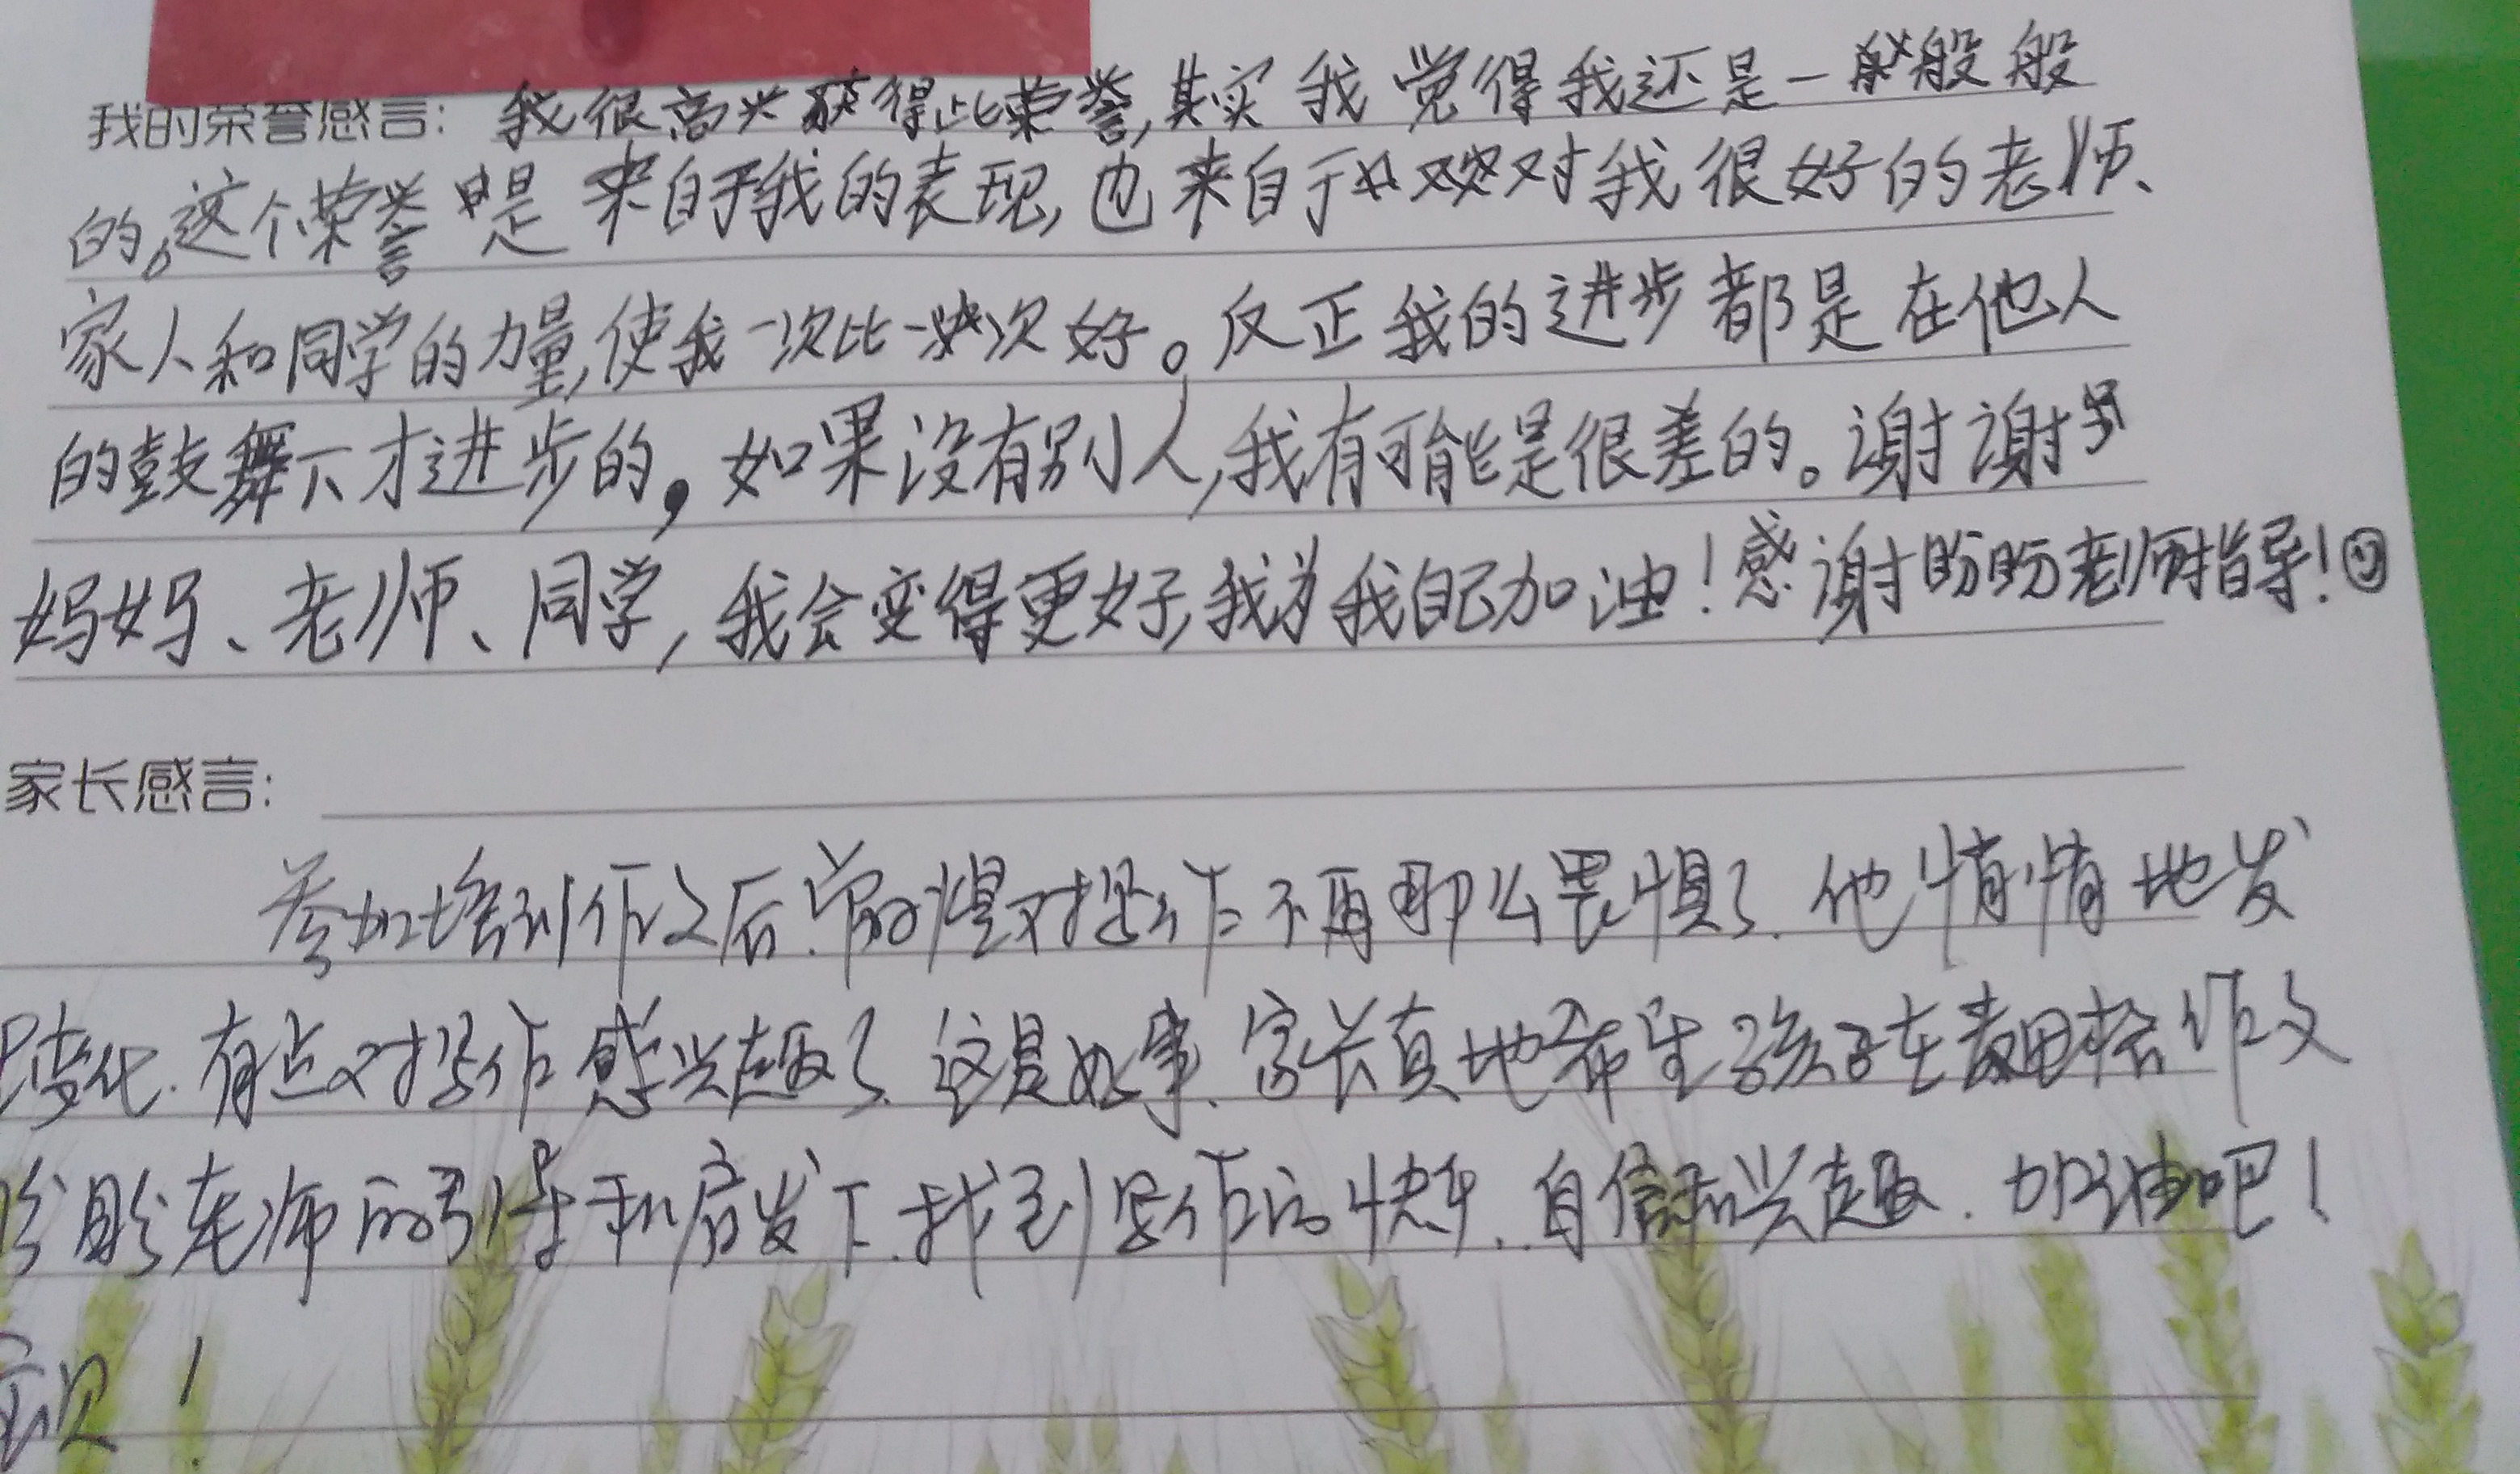 我的荣誉感言: 我很高兴获得此荣誉,其实我觉得我还是一般般
的。这个荣誉是来自于我的表现,也来自于对我很好的老师、
家人和同学的力量,使我一次比一次好。反正我的进步都是在他人
的鼓舞下才进步的,如果没有别人,我有可能是很差的。谢谢
妈妈、老师、同学,我会变得更好,我为我自己加油!感谢盼盼老师指导!
家长感言:
参加培训作文后.对写作不再那么畏惧了.他悄悄地发
变化.有点对写作感兴趣了.这是好事.家长真地希望孩子在麦田村作文
盼老师的引导和启发下.找到写作的快乐.自信和兴趣.加油吧!
!